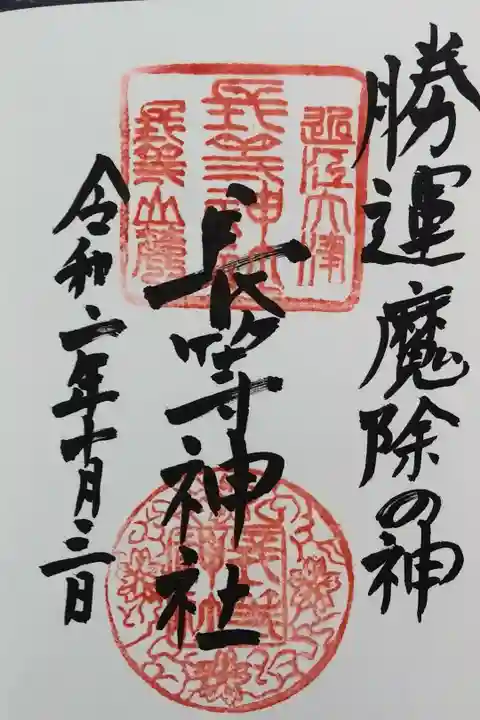 勝運魔除の神
長等神社
令和二年十月三日
近江大津
長等神社